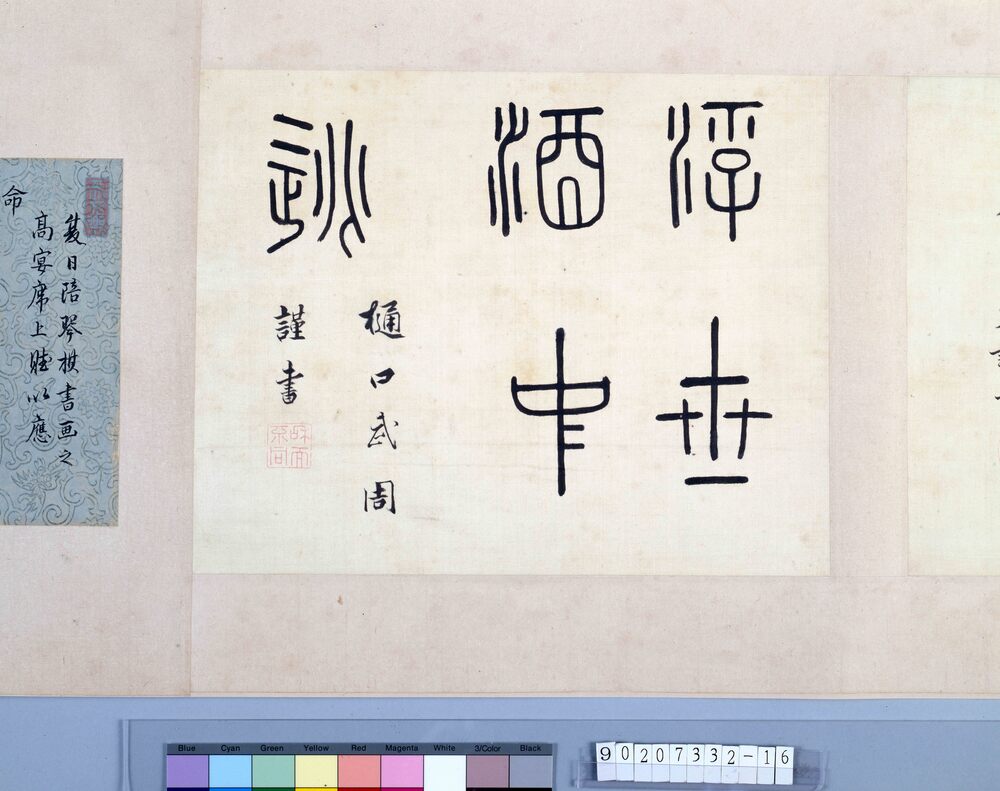 浮世
酒中
逃
樋口武周
謹書
夏日陪琴棋書画之
高宴席上賦以應
命
Blue Cyan Green Yellow Red Magenta White 3/Color Black
90207332-16